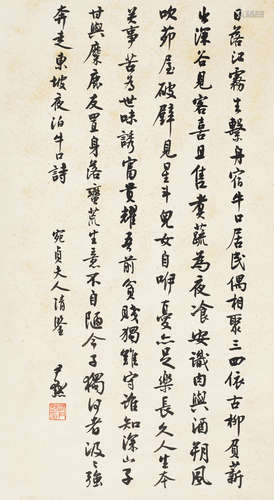 日落江霧生繫舟宿牛口居民偶相聚三四依古柳負薪
出深谷見客喜且售煮蔬為夜飡安識肉與酒朔風
吹茆屋破壁見星斗兒女自咿憂亦足樂長久人生本
无事苦為世味誘富貴耀吾前貧賤獨難守誰知深山子
甘與麋鹿友置身落蠻荒生意不自陋今予獨何者汲〻強
奔走東坡夜泊牛口詩
宛貞夫人清鑒
尹默